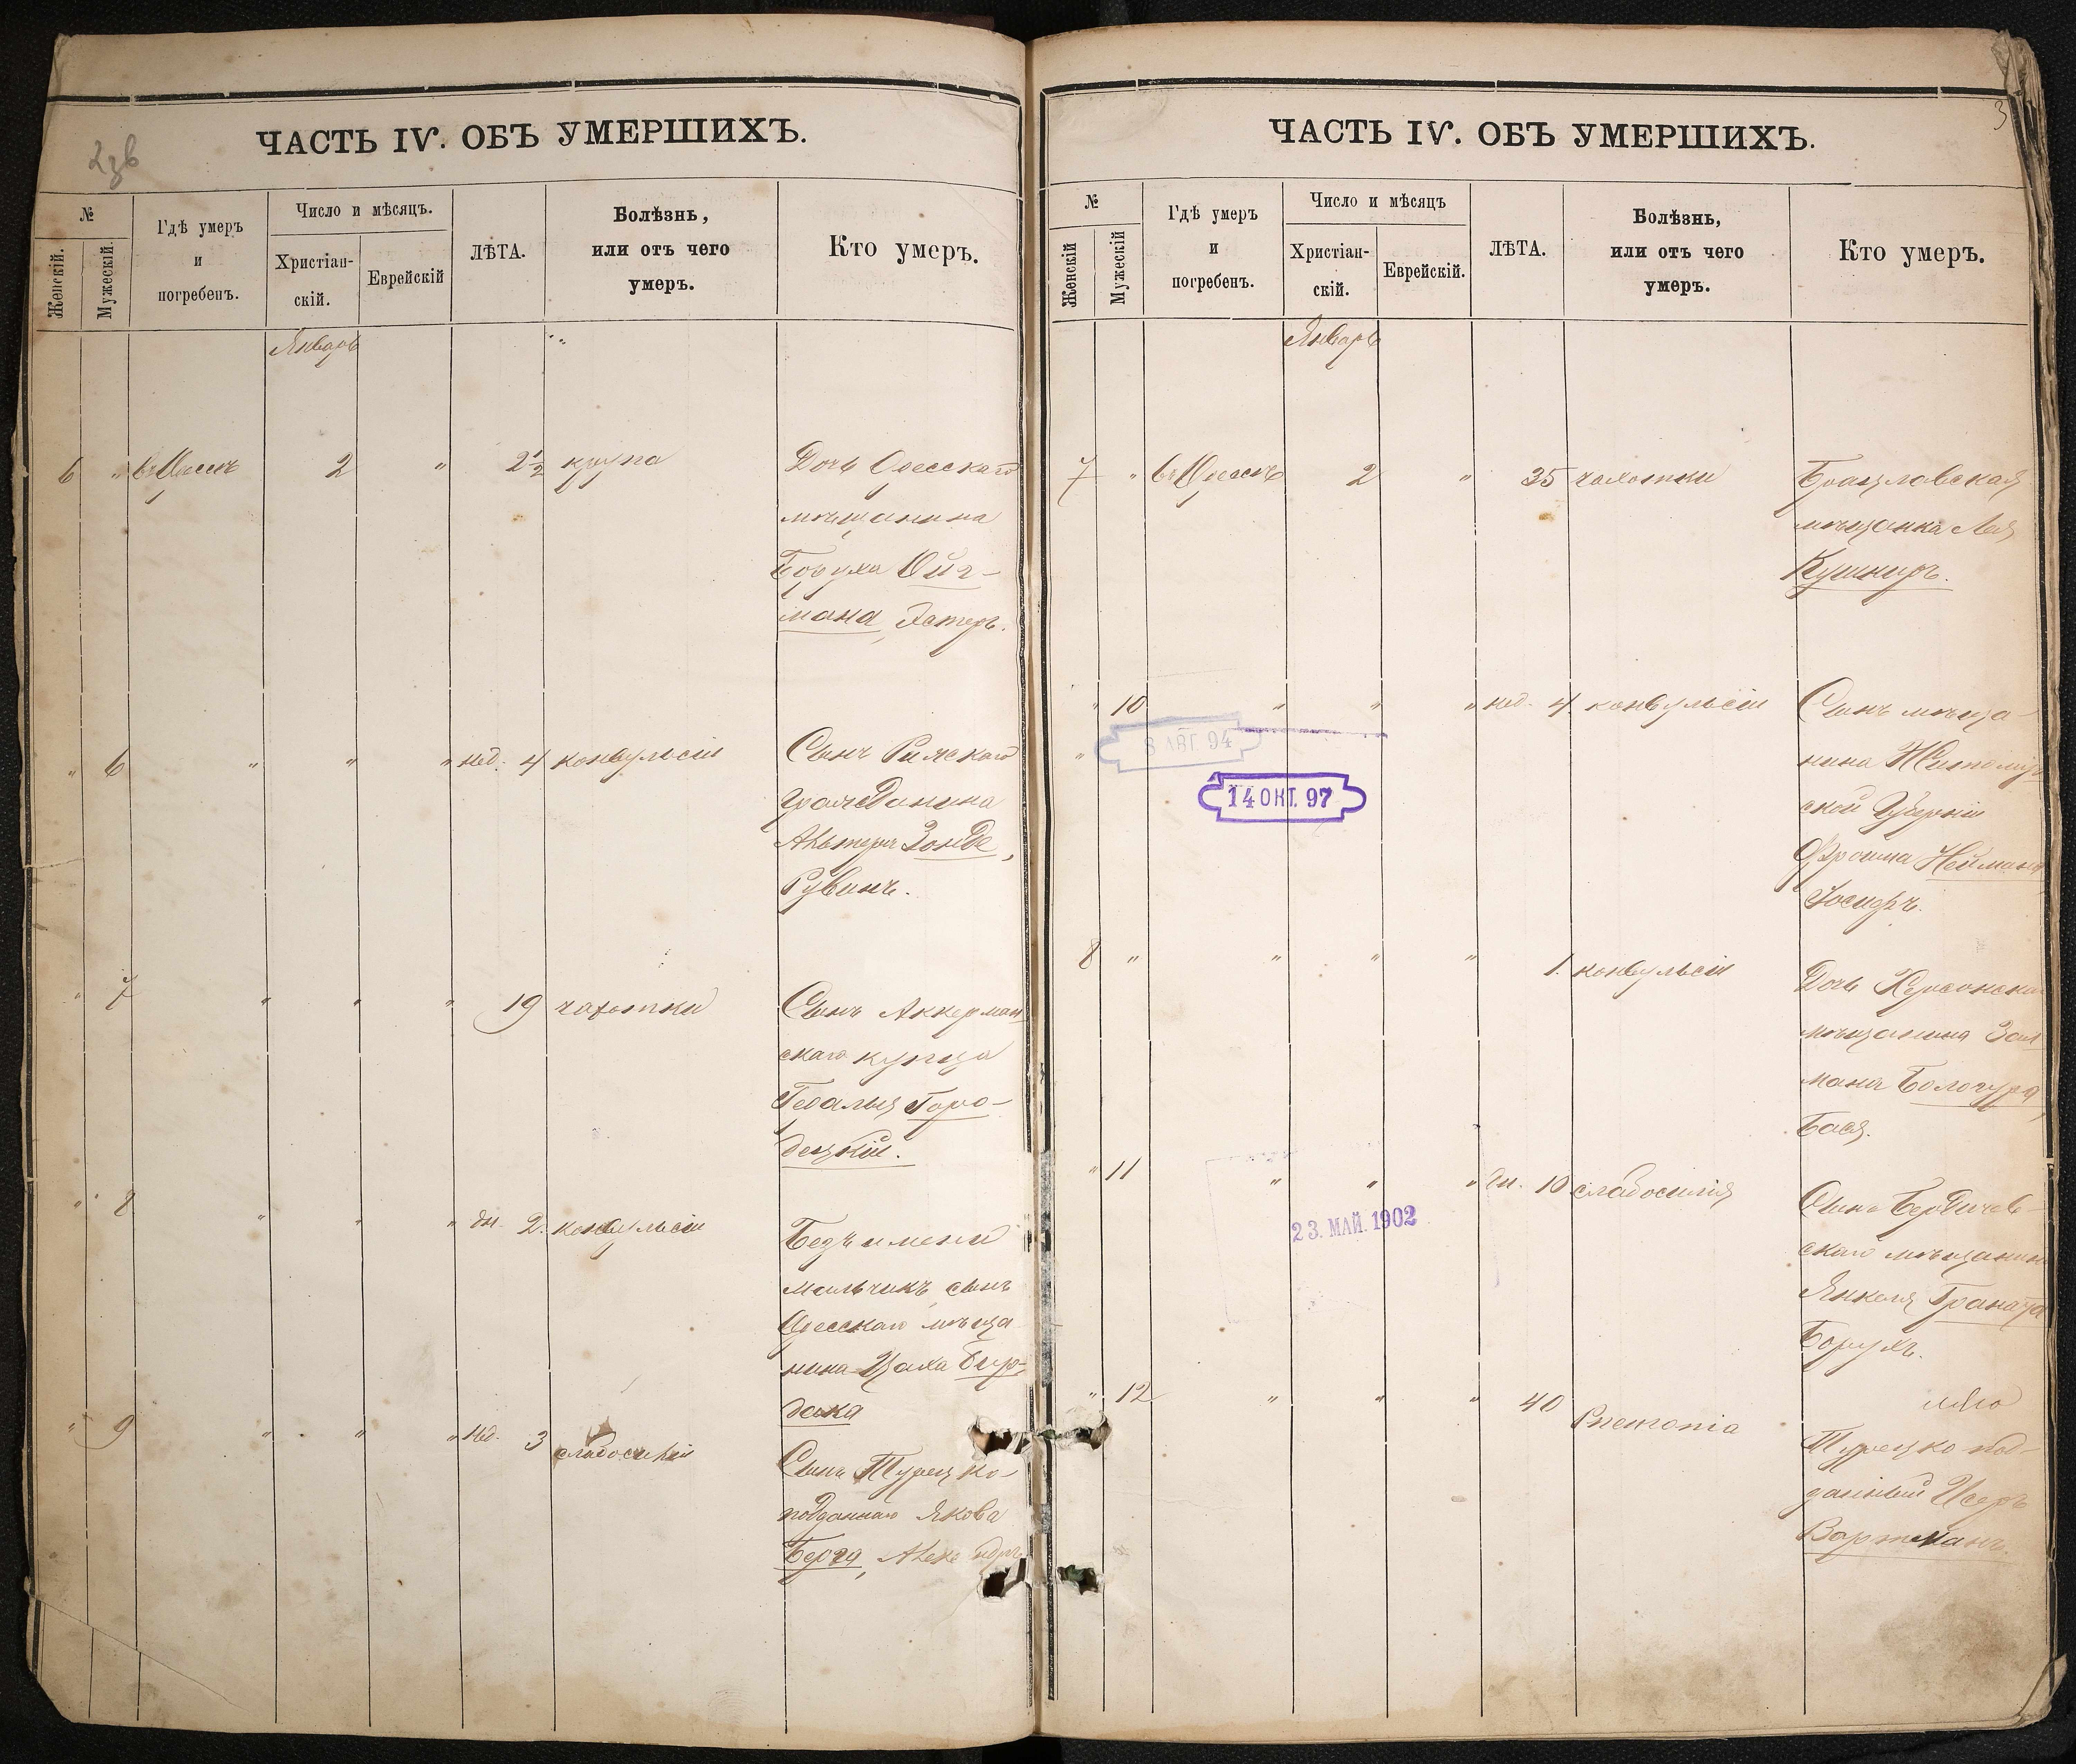 ЧАСТЬ IV. ОБЪ УМЕРШИХЪ.
№
Женскій.
Мужескій.
Гдѣ умеръ
и
погребенъ.
Число и мѣсяцъ.
Христіан-
скій.
Еврейскій
ЛѢТА.
Болѣзнь,
или отъ чего
умеръ.
Кто умеръ.
Январь
6 " въ Одессѣ 2 " 2 1/2 крупа
Дочь Одесскаго
мѣщанина
Боруха Ойг-
мана, Эстеръ.
" 6 " " " нед. 4 конвульсіи
Сынъ Рижскаго
гражданина
Альтера Зонде,
Рувинъ.
" 7 " " " 19 чахотки
Сынъ Аккерман
скаго купца
Гедалья Горо-
децкій.
" 8 " " " дн. 2. конвульсіи
Безъ имени
мальчикъ, сынъ
Одесскаго мѣща
нина Цаха Бир-
дака
" 9 " " " нед. 3 слабосилія
Сынъ Турецко-
подданнаго Якова
Берга,
ЧАСТЬ IV. ОБЪ УМЕРШИХЪ.
3
№
Женскій
Мужескій
Гдѣ умеръ
и
погребенъ.
Число и мѣсяцъ
Христіан-
скій.
Еврейскій.
ЛѢТА.
Болѣзнь,
или отъ чего
умеръ.
Кто умеръ.
Январь
7 " въ Одессѣ 2 " 35 чахотки
Брацлавская
мѣщанка Лея
Кушниръ.
" 10 " " " нед. 4. конвульсіи
Сынъ мѣща-
нина Житомир
ской Губерніи
Фроима Неймана
Іосифъ.
8 АВГ. 94
14 ОКТ. 97
8 " " " " 1. конвульсіи
Дочь Херсонска
мѣщанина Зал
мана Бологура,
Бася.
" 11 " " " дн. 10 слабосилія
Сынъ Бердичев-
скаго мѣщанин
Янкеля Граната
Борухъ.
23. МАЙ. 1902
" 12 " " " 40 Pnemonia
Турецко под-
данный Исеръ
Вортманъ.